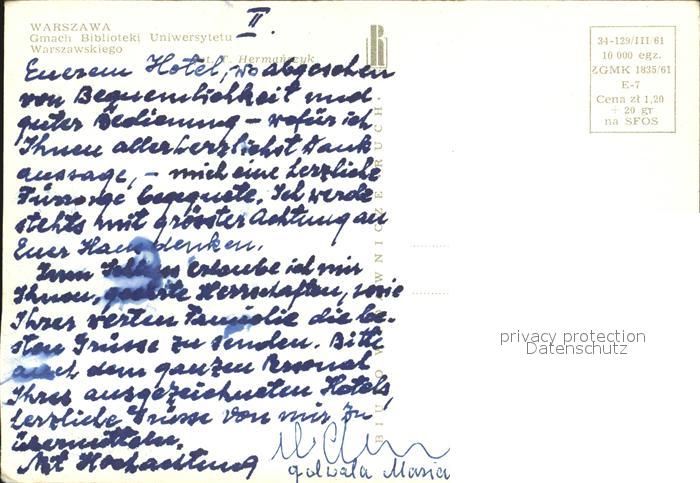 II.
WARSZAWA
Gmach Biblioteki Uniwersytetu
Warszawskiego
Fot. T. Hermańczyk
Euerem Hotel, wo abgesehen
von Bequemlichkeit und
guter Bedienung – wofür ich
Ihnen allerherzlichst Dank
aussage, – mich eine herzliche
Fürsorge begegnete. Ich werde
stehts mit grösster Achtung an
Euer Haus denken.
Zum Schluss erlaube ich mir
Ihnen, geehrte Herrschaften, sowie
Ihrer werten Familie die be-
sten Grüsse zu senden. Bitte
auch dem ganzen Personal
Ihres ausgezeichneten Hotels
herzliche Grüsse von mir zu
übermitteln.
Mit Hochachtung
Maria
BIURO WYDAWNICZE RUCH
34-129/III/61
10 000 egz.
ZGMK 1835/61
E-7
Cena zł 1,20
+ 20 gr
na SFOS
privacy protection
Datenschutz